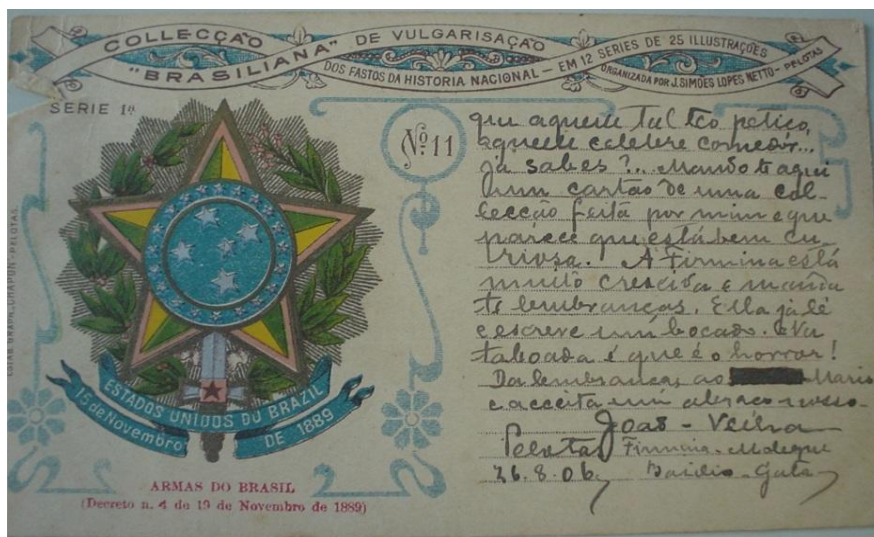 COLLECÇÃO "BRASILIANA" DE VULGARISAÇÃO
DOS FASTOS DA HISTORIA NACIONAL – EM 12 SERIES DE 25 ILLUSTRAÇÕES
ORGANIZADA POR J. SIMÕES LOPES NETTO - PELOTAS
SERIE 1ª
Nº 11
ESTADOS UNIDOS DO BRAZIL
15 de Novembro DE 1889
ARMAS DO BRASIL
(Decreto n. 4 de 19 de Novembro de 1889)
CHAPON-PELOTAS
tal
aquelle celebre comedor...
já sabes?... Mando te aqui
um cartão de uma col-
lecção feita por mim e que
parece que está bem cu-
riosa. A Firmina está
muito crescida e manda
te lembranças. Ella já lê
e escreve um bocado. Na
taboada é que é o horror!
Da lembranças ao Mario
e acceita um abraço nosso.
Joas - Velha
Pelotas Firmina - Moleque
26.8.06